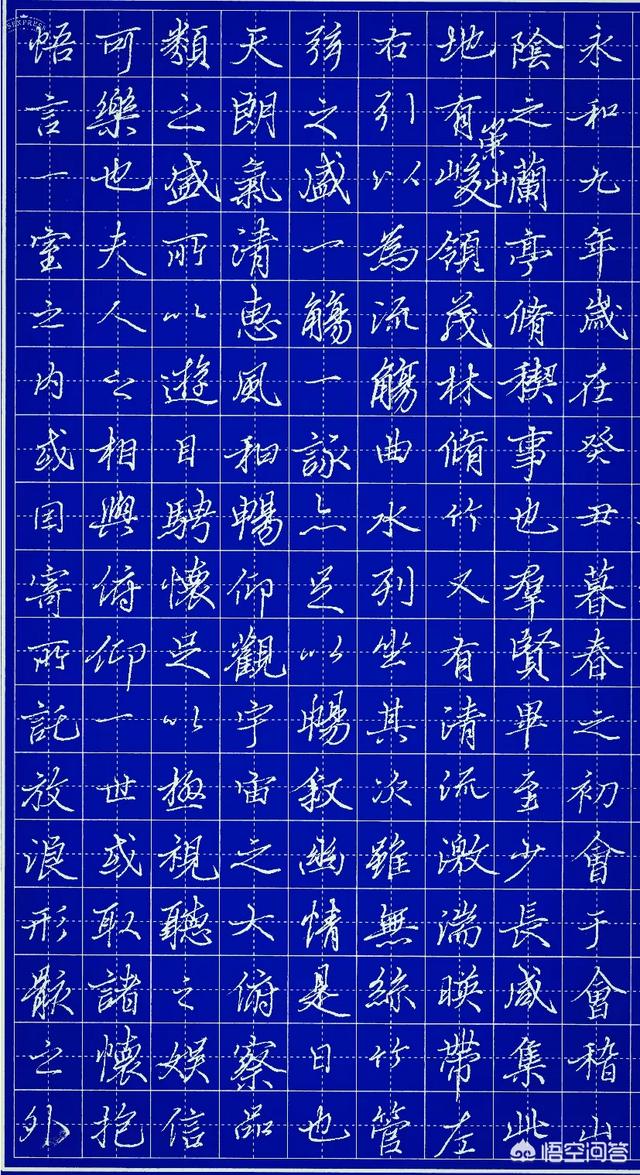 永和九年歲在癸丑暮春之初會于會稽山
陰之蘭亭脩稧事也羣賢畢至少長咸集此
地有崇山峻領茂林脩竹又有清流激湍暎帶左
右引以為流觴曲水列坐其次雖無絲竹管
弦之盛一觴一詠亦足以暢叙幽情是日也
天朗氣清惠風和暢仰觀宇宙之大俯察品
類之盛所以遊目騁懷足以極視聽之娛信
可樂也夫人之相與俯仰一世或取諸懷抱
悟言一室之內或因寄所託放浪形骸之外
悟空问答